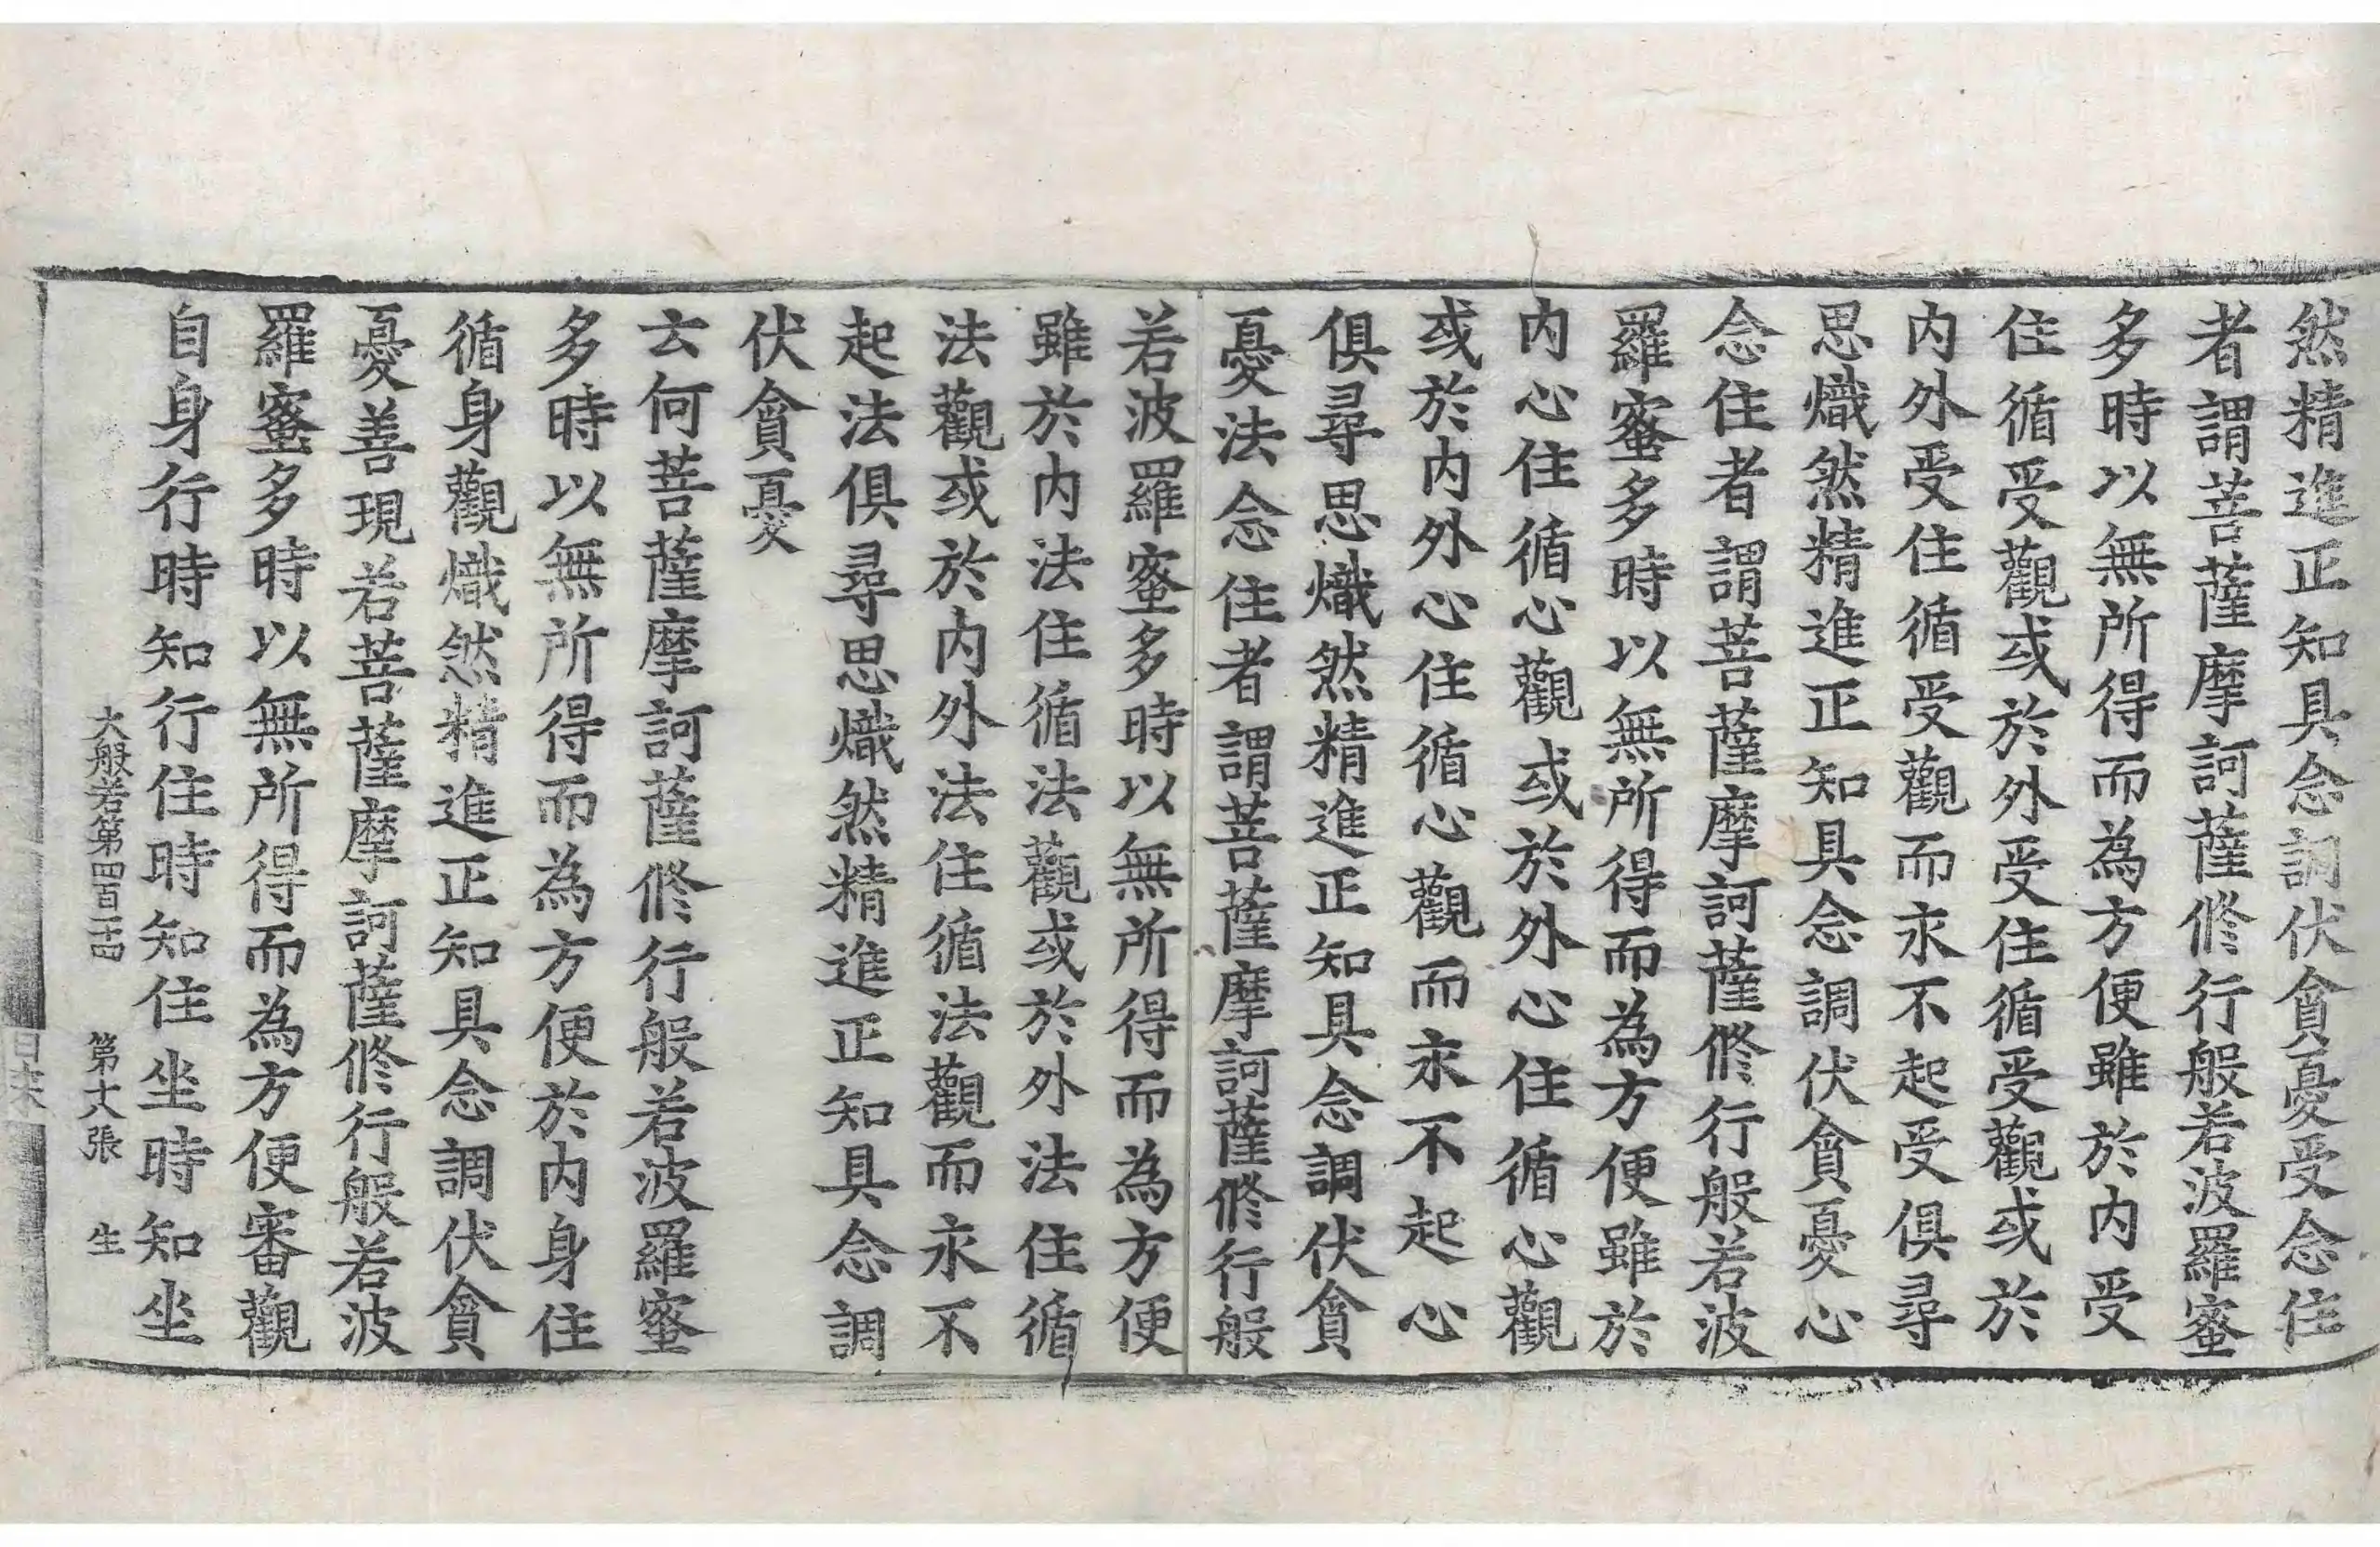 然精進正知具念調伏貪憂受念住
者謂菩薩摩訶薩修行般若波羅蜜
多時以無所得而為方便雖於内受
住循受觀或於外受住循受觀或於
内外受住循受觀而永不起受俱尋
思熾然精進正知具念調伏貪憂心
念住者謂菩薩摩訶薩修行般若波
羅蜜多時以無所得而為方便雖於
内心住循心觀或於外心住循心觀
或於内外心住循心觀而永不起心
俱尋思熾然精進正知具念調伏貪
憂法念住者謂菩薩摩訶薩修行般
若波羅蜜多時以無所得而為方便
雖於内法住循法觀或於外法住循
法觀或於内外法住循法觀而永不
起法俱尋思熾然精進正知具念調
伏貪憂
云何菩薩摩訶薩修行般若波羅蜜
多時以無所得而為方便於内身住
循身觀熾然精進正知具念調伏貪
憂善現若菩薩摩訶薩修行般若波
羅蜜多時以無所得而為方便審觀
自身行時知行住時知住坐時知坐
大般若第四百十四 第十八張 生